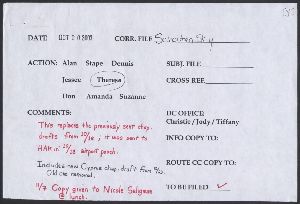 DATE OCT 20 2003 CORR. FILE
ACTION: Alan Stape Dennis SUBJ. FILE
Jessee Theresa CROSS REF.
Don Amanda Suzanne
COMMENTS: DC OFFICE:
Christie / Jody / Tiffany
This replaces the previously sent chap.
drafts from 10/18; it was sent to INFO COPY TO:
HAK in 10/18 airport pouch.
ROUTE CC COPY TO:
Includes new Cyprus chap. draft from
Old one removed. TO BE FILED ✓
11/7 Copy given to Nicole Seligman
@ lunch.